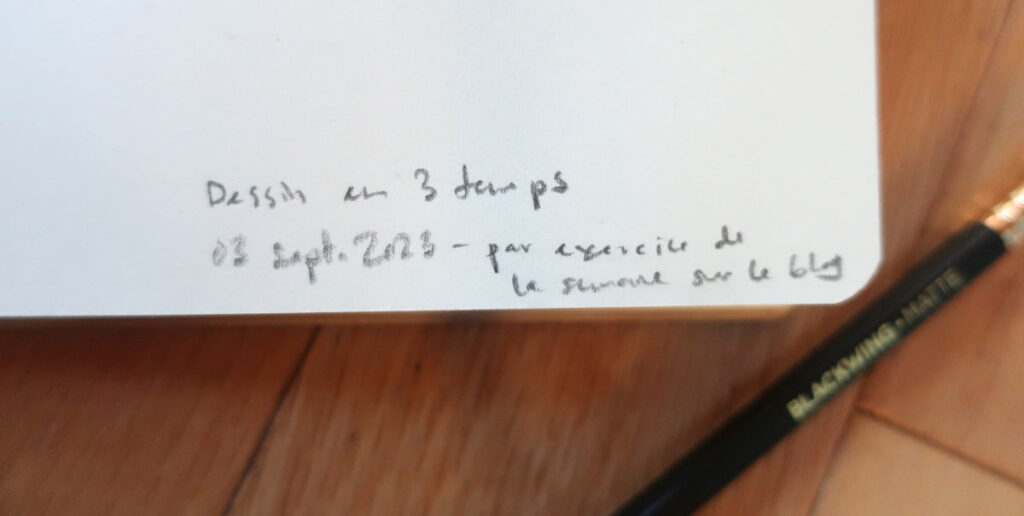 Dessin en 3 temps
03 sept. 2023 - par exercice de
la semaine sur le blog
BLACKWING • MATTE